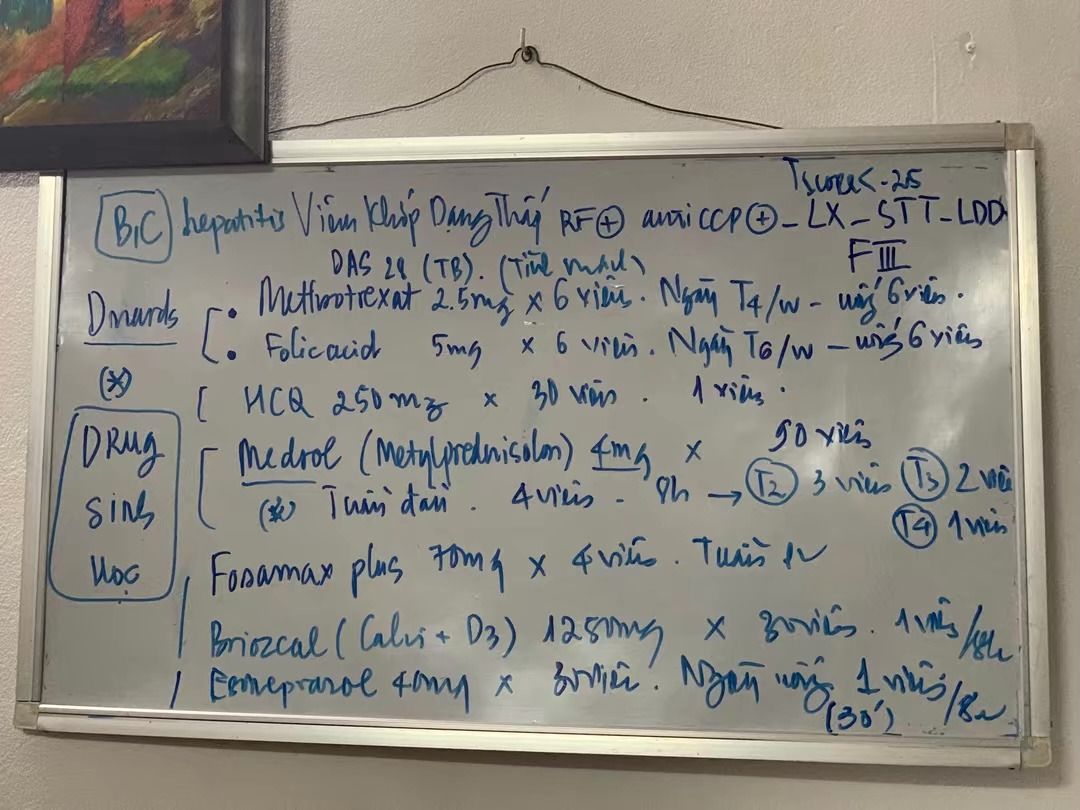 Tscore<-2.5
B,C hepatitis Viêm Khớp Dạng Thấp RF(+) anti CCP(+) - LX - STT - LDD
DAS 28 (TB). FIII
Dmards
• Methrotrexat 2.5mg x 6 viên. Ngày T4/w - uống 6 viên.
• Folic acid 5mg x 6 viên. Ngày T6/w - uống 6 viên
(*)
HCQ 250mg x 30 viên. 1 viên.
DRUG
sinh
học
Medrol (Metylprednisolon) 4mg x 90 viên
(*) Tuần đầu. 4 viên - 8h → T2 3 viên T3 2 viên
T4 1 viên
Fosamax plus 70mg x 4 viên. Tuần 1v
Briozcal (Calci + D3) 1250mg x 30 viên. 1 viên/8h
Esomeprazol 40mg x 30 viên. Ngày uống 1 viên/8h
(30')